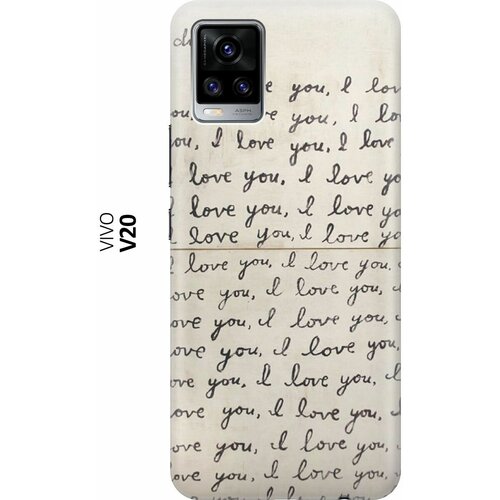 e you, I lov
ou, e you, I lo
ou, I love you, I love
I love you, I love yo
love you, I love yo
I love you, I love yo
I love you, I love you,
ove you, I love you, I
ove you, I love you,
ove you, I love you,
ove you, I love you, I
love you, I love you, I
ove you, I love you, I
ove you, I love you,
VIVO
V20